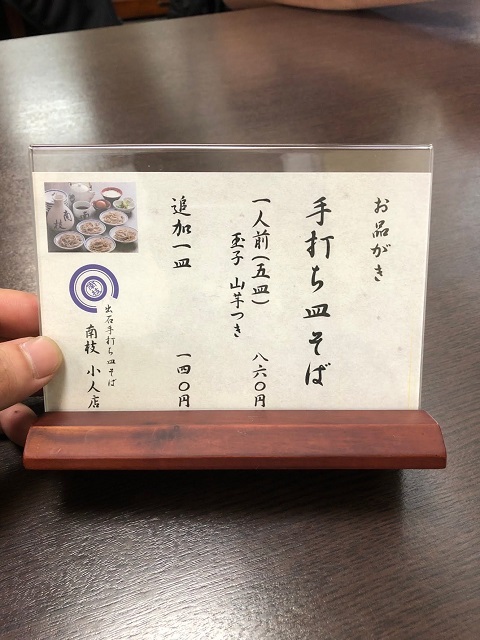 お品がき
手打ち皿そば
一人前(五皿) 八六〇円
玉子 山芋つき
追加一皿 一四〇円
出石手打ち皿そば
南枝 小人店